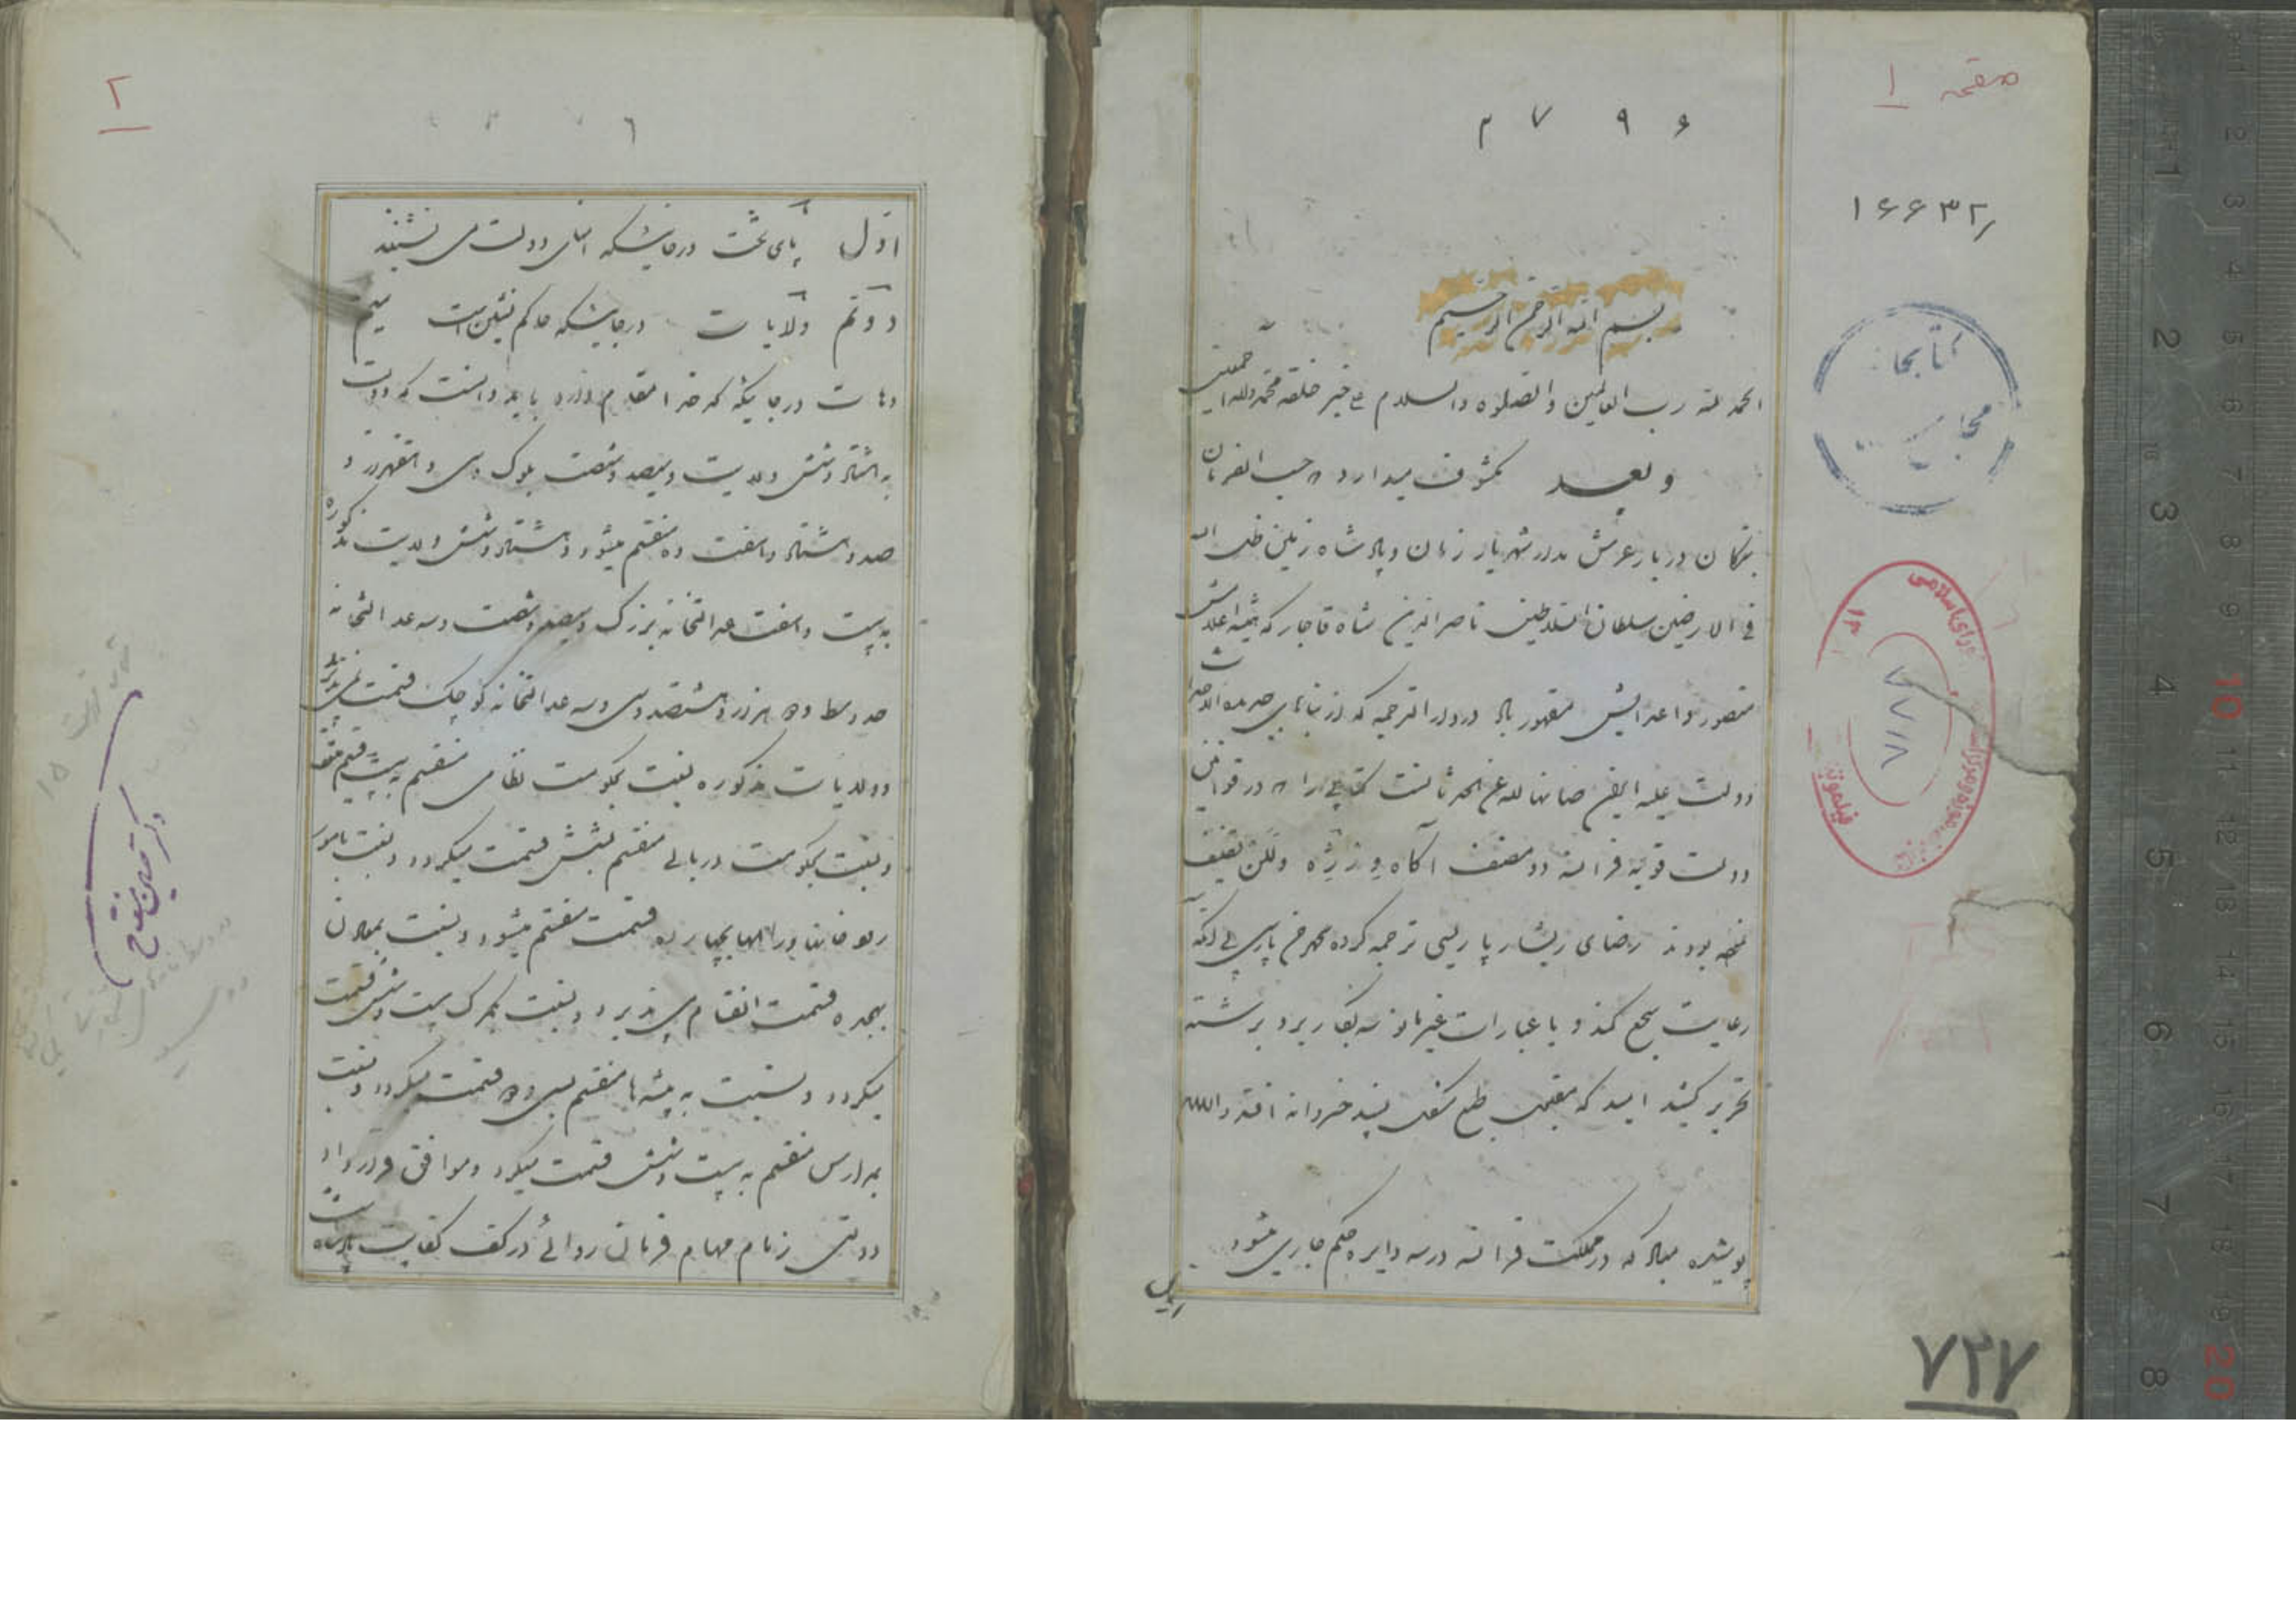 صفحه ۱
۲ ۷ ۹ ۶
۱۶۶۳۲
بسم الله الرحمن الرحیم
الحمد لله رب العالمین والصلوة والسلام علی خیر خلقه محمد وآله اجمعین
وبعد مکشوف میدارد که حسب الفرمان
دربار عرش مدار شهریار زمان و پادشاه زمین ظل الله
فی الارضین سلطان السلاطین ناصرالدین شاه قاجار که همیشه اعلامش
منصور و اعدایش مقهور باد در دار الترجمه که از بناهای
دولت علیه ایران صانها الله عن الحدثان است کتابی را که در قوانین
دولت قویه فرانسه دو مصنف آگاه
بودند رضای ریشار پاریسی ترجمه کرده پارسی بی آنکه
رعایت سجع کند و یا عبارات غیر مانوسه بکار برد برشته
تحریر کشید امید که طبع پسند خسروانه افتد والسلام
پوشیده مباد که در مملکت فرانسه در سه دایره حکم جاری میشود
اول
کتابخانه
مجلس
۷۷۱۸
۷۲۷
۲
اول پای تخت در جائیکه امنای دولت می نشینند
دوم ولایات در جائیکه حاکم نشین است سیم
دهات در جائیکه کدخدا مقام دارد باید دانست که دولت
به هشتاد و شش ولایت و سیصد و شصت بلوک و سی و هفت هزار و
صد و هشتاد و هفت ده منقسم میشود و هشتاد و شش ولایت مذکوره
به بیست و هفت عدالتخانه بزرگ و سیصد و شصت و سه عدالتخانه
حد وسط و دو هزار و هشتصد و سی و سه عدالتخانه کوچک قسمت می پذیرد
و ولایات مذکوره بنسبت بحکومت نظامی منقسم به بیست قسم
و نسبت بحکومت دریائی منقسم بشش قسمت میگردد و نسبت بامور
بچهارده قسمت منقسم میشود و نسبت بمعادن
بهجده قسمت انقسام می پذیرد و نسبت بگمرک بیست و شش قسمت
میگردد و نسبت به بیشه ها منقسم بسی و دو قسمت میگردد و نسبت
بمدارس منقسم به بیست و شش قسمت میگردد و موافق قرارداد
دولتی زمام مهام فرمان روائی در کف کفایت پادشاه است